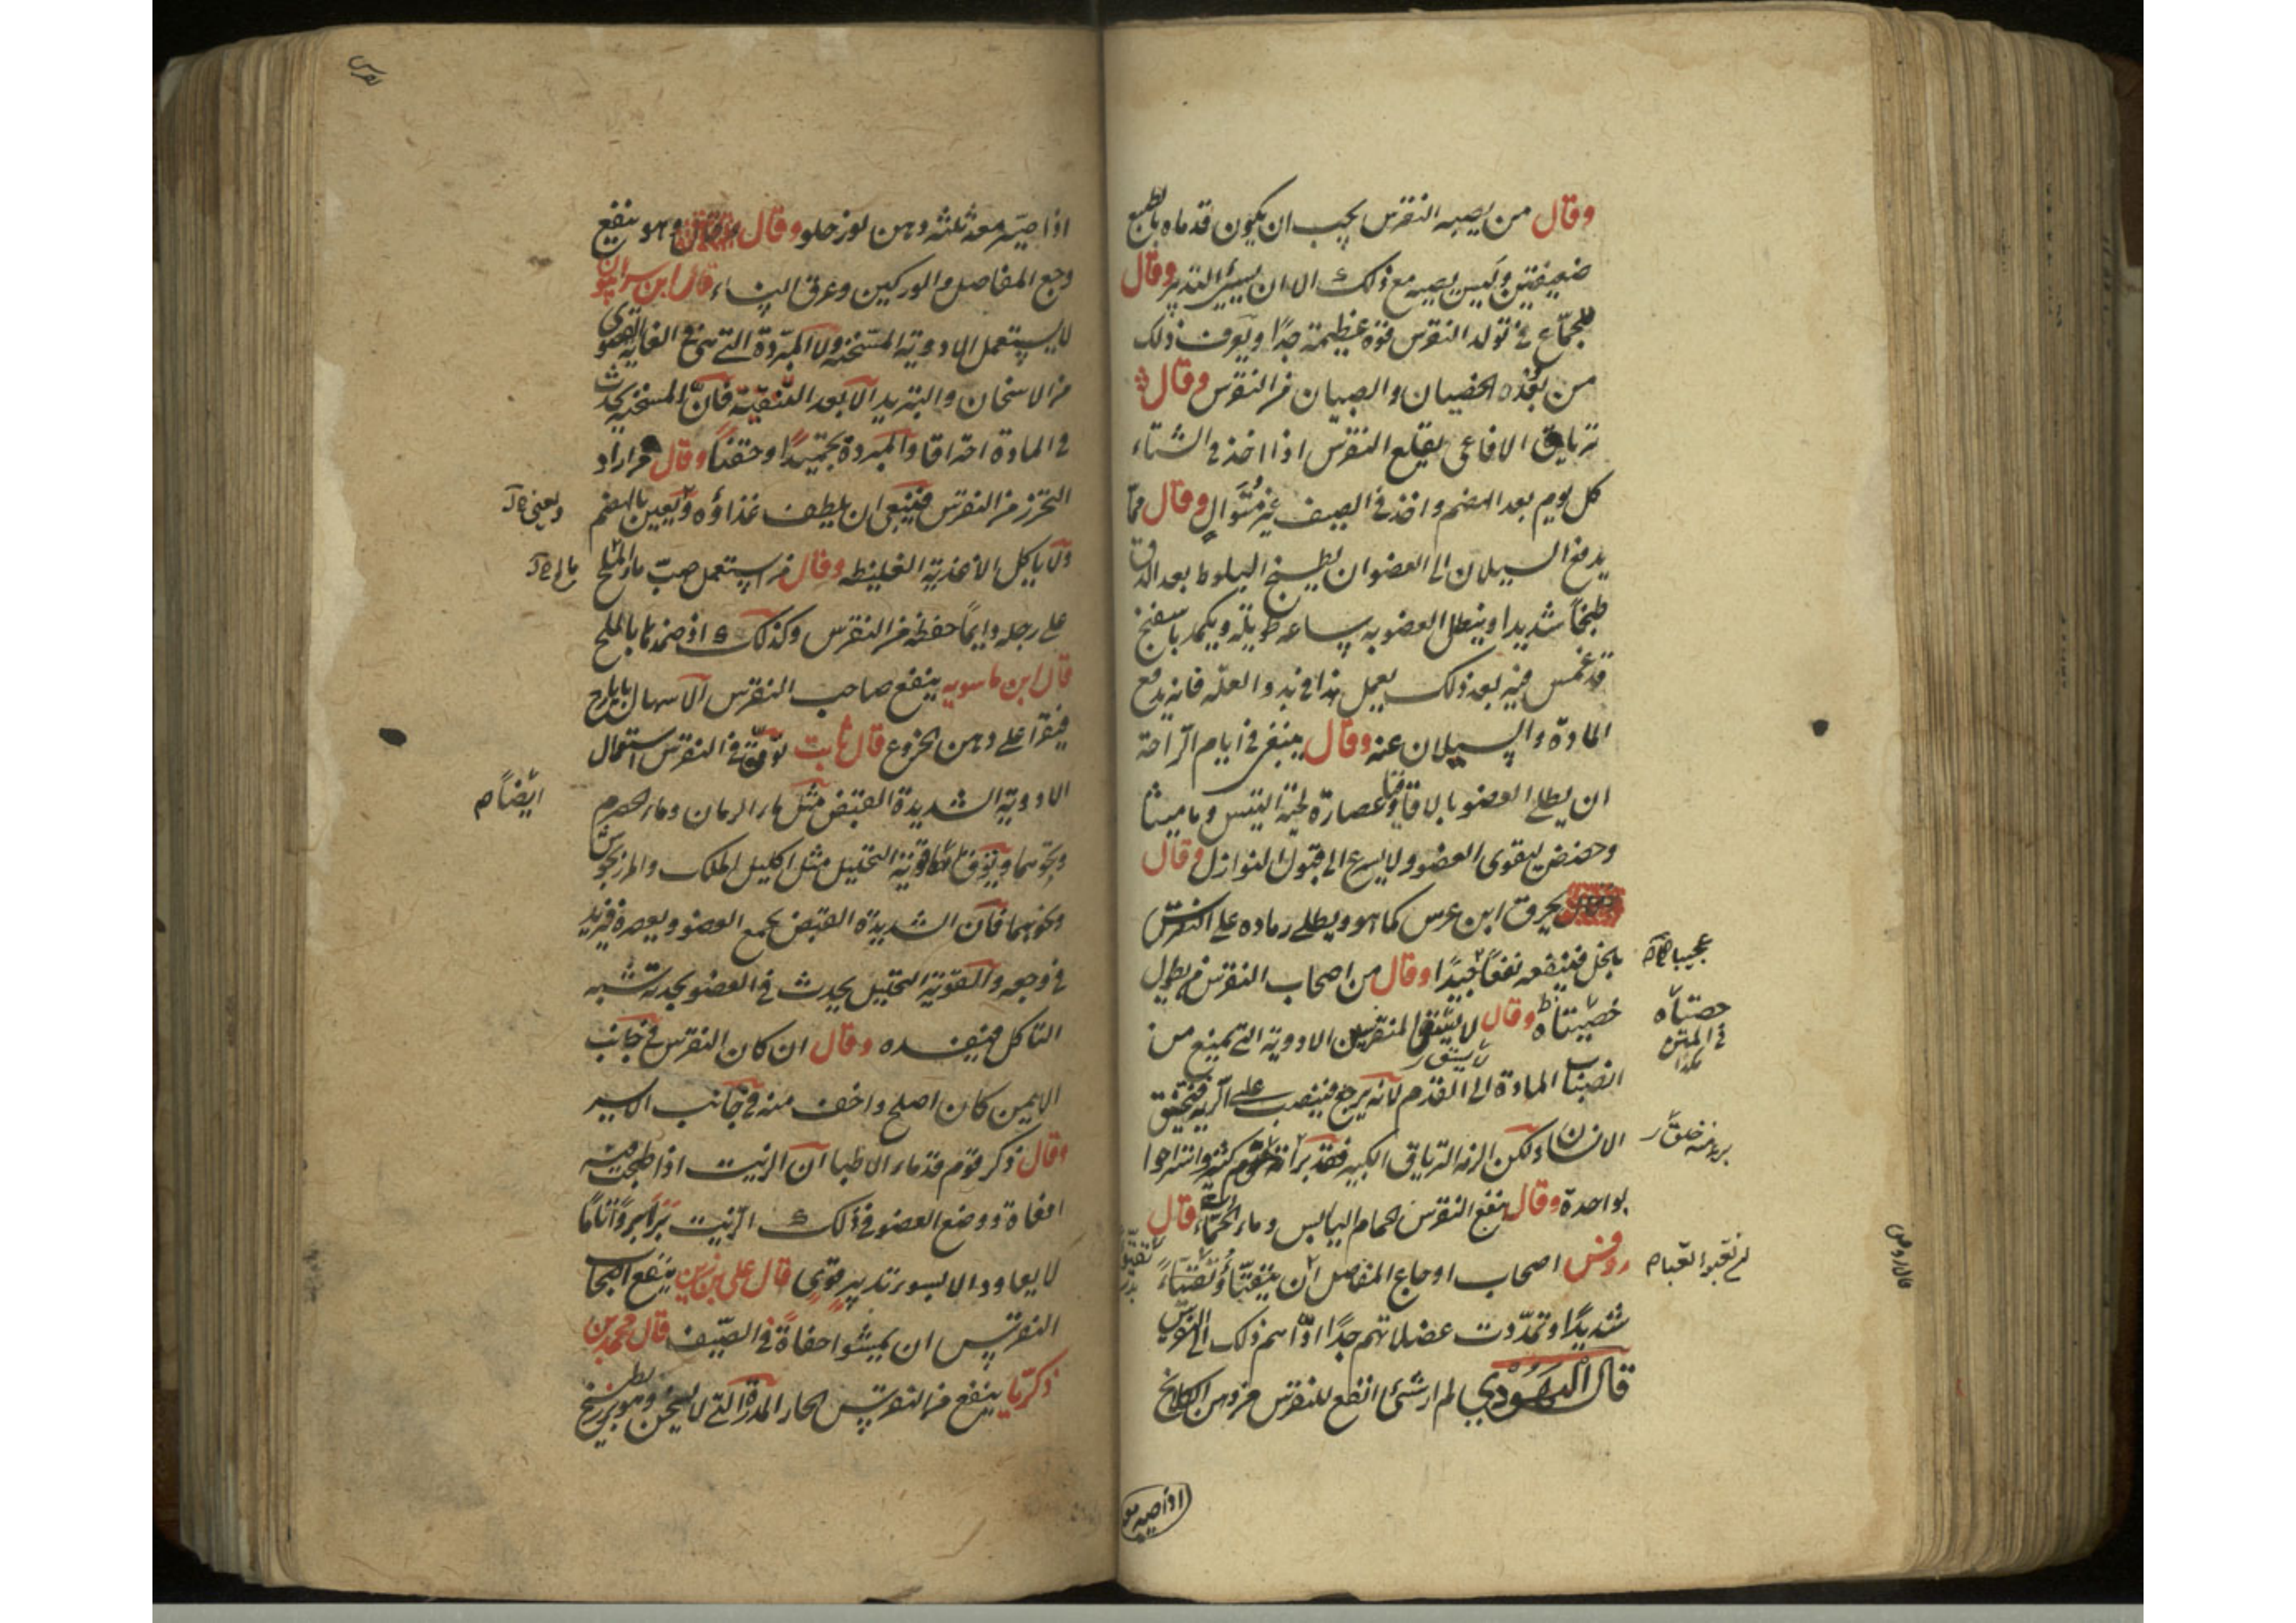 وقال من يصيبه النقرس يجب ان يكون قدماه بالطبع
ضعيفتين وليس يصيبه مع ذلك الا ان يسيئ التدبير وقال
للجماع في تولد النقرس قوة عظيمة جدا ويعرف ذلك
من بعده الخصيان والصبيان من النقرس وقال
ترياق الافاعي يقلع النقرس اذا اخذ في الشتاء
كل يوم بعد الهضم واخذ في الصيف غير متوال وقال مما
يدفع السيلان الى العضو ان يطبخ البلوط بعد الدق
طبخا شديدا وينطل العضو به ساعة طويلة ويكمد باسفنج
قد غمس فيه بعد ذلك يعمل هذا في بدو العلة فانه يدفع
المادة والسيلان عنه وقال ينبغي في ايام الراحة
ان يطلى العضو بالاقاقيا وعصارة لحية التيس وماميثا
وحضض ليقوى العضو ولا يسرع الى قبول النوازل وقال
يحرق ابن عرس كما هو ويطلى رماده على النقرس
بالخل فينفعه نفعا جيدا وقال من اصحاب النقرس من يطول
عجيبا
خصيتاه وقال لا المنقرس الادوية التي تمنع من
في المتن هكذا
انصباب المادة الى القدم لانه يرجع فينصب على الرية فيختنق
الانسان ولكن الزمه الترياق الكبير فقد برا به قوم كثير واستراحوا
بواحدة وقال ينفع النقرس الحمام اليابس وماء الحماة قال
روفس اصحاب اوجاع المفاصل ان
شديدا وتمددت عضلاتهم جدا اداهم ذلك الى النقرس
قال اليهودي لم ار شئ انفع للنقرس من دهن الكلكلانج
اذا صير معه
اذا صير معه ثلثه دهن لوز حلو وقال وهو ينفع
وجع المفاصل والوركين وعرق النساء قال ابن سرابيون
لا يستعمل الادوية المسخنة ولا المبردة التي هي في الغاية القصوى
من الاسخان والتبريد الا بعد التنقية فان المسخنة يحدث
في المادة احتراقا والمبردة تجميدا وحقنا وقال من اراد
التحرز من النقرس فينبغي ان يلطف غذاؤه ويعين بالهضم
ولا ياكل الاغذية الغليظة وقال من استعمل صب ماء الملح
على رجله دايما حفظه من النقرس وكذلك اذ ضمدها بالملح
قال ابن ماسويه ينفع صاحب النقرس الاسهال بايارج
فيقرا على دهن الخروع قال ثابت توق في النقرس استعمال
الادوية الشديدة القبض مثل ماء الرمان وماء الحصرم
ايضا م
ونحوهما وتوق القوية التحليل مثل اكليل الملك والمرزنجوش
ونحوهما فان الشديدة القبض يجمع العضو ويعصره فيزيد
في وجعه والقوية التحليل يحدث في العضو بحدته شبه
التاكل فيفسده وقال ان كان النقرس في جانب
الايمن كان اصلح واخف منه في جانب الايسر
وقال ذكر قوم قدماء الاطباء ان الزيت اذا طبخت فيه
افعاة ووضع العضو في ذلك الزيت برا بروا تاما
لا يعاود الا بسوء تدبير قوي قال علي بن ربن ينفع اصحاب
النقرس ان يمشوا حفاة في الصيف قال محمد بن
زكريا ينفع من النقرس الحار المدرة التي لا يسخن وهو بزر بطيخ